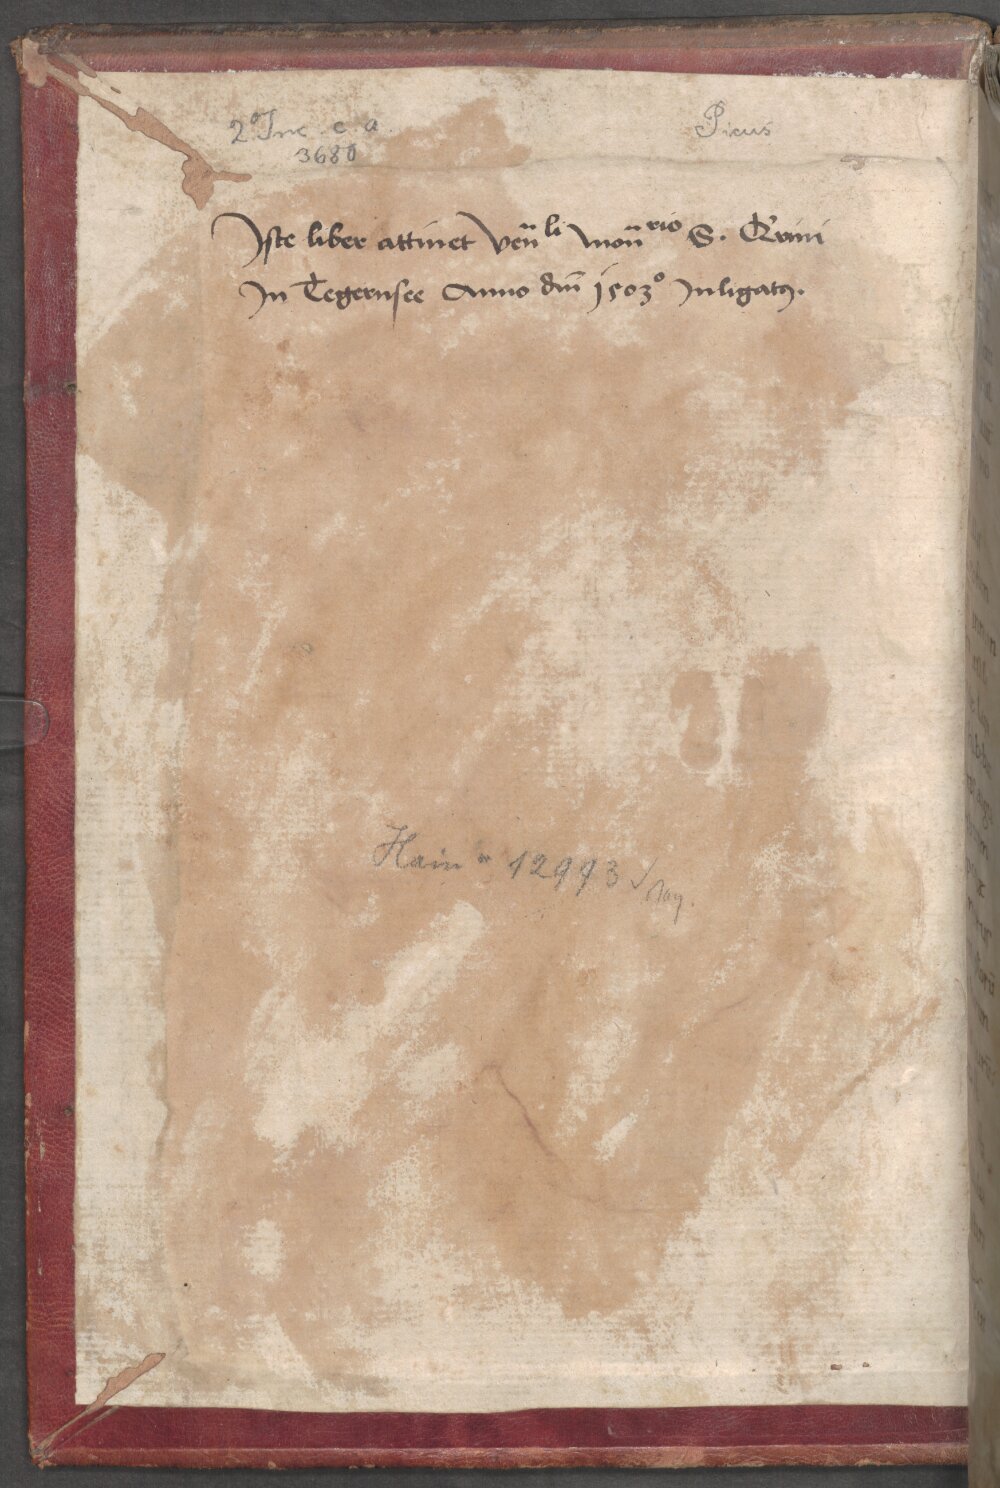 2° Inc. c. a.
3680
Picus
Iste liber attinet Ven̄li Mon̄rio S. Qrini
In Tegernsee Anno dn̄i 1503° Inligatꝫ.
Hain * 12993